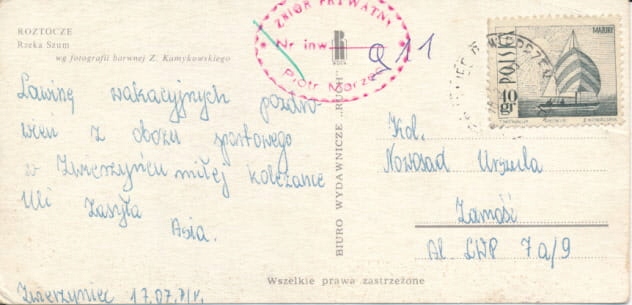 ROZTOCZE
Rzeka Szum
wg fotografii barwnej Z. Kamykowskiego
ZBIÓR PRYWATNY
Nr inw. 911
Piotr Marzec
BIURO WYDAWNICZE „RUCH"
MAZURY
POLSKA
40 gr
Lawinę wakacyjnych pozdro-
wień z obozu sportowego
w Zwierzyńcu miłej koleżance
Uli zasyła
Asia.
Zwierzyniec 17.07.71r.
Kol.
Nowosad Urszula
Zamość
Al. LWP 7a/9
Wszelkie prawa zastrzeżone